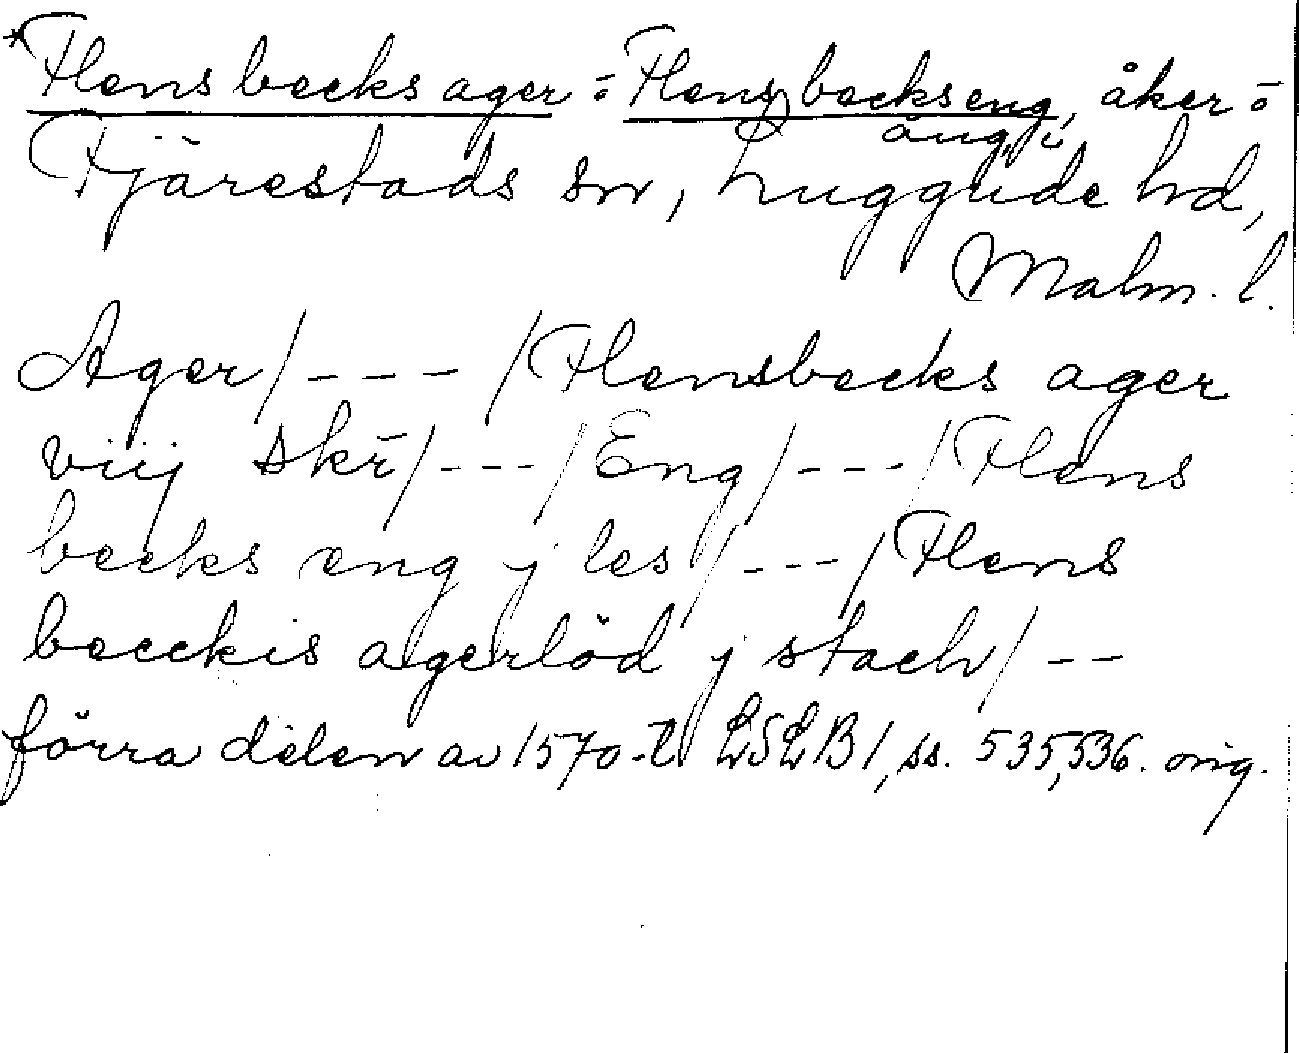 *Flens becks ager = Flens becks eng, åker o
äng, i
Fjärestads sn, Luggude hd,
Malm. l.
Ager/---/Flensbecks ager
viij skr̄/---/Eng/---/Flens
becks eng j les/---/Flens
becckis agerlöd j stach/--
förra delen av 1570-t. LSLB1, ss. 535,536. orig.